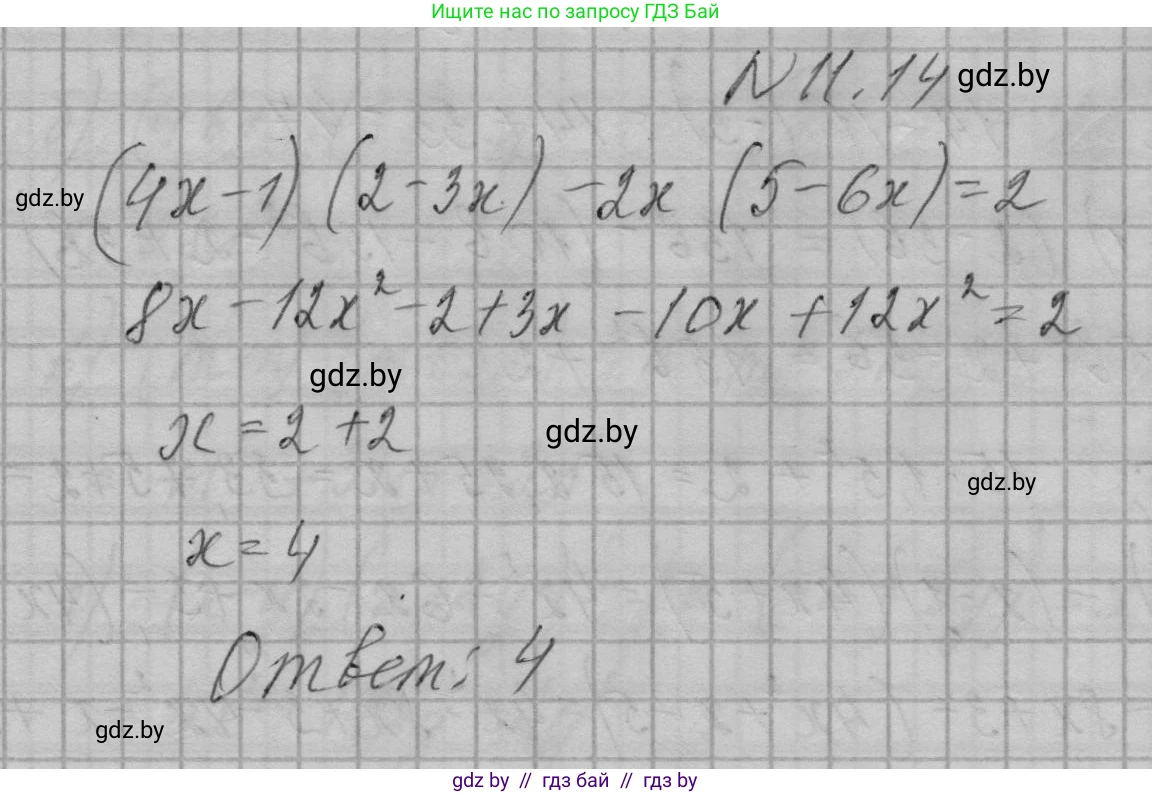 Ищите нас по запросу ГДЗ Бай
N 11.14 gdz.by
gdz.by (4x-1) (2-3x) -2x (5-6x)=2
8x-12x²-2+3x -10x +12x²=2
gdz.by
x=2+2 gdz.by
gdz.by
x=4
Ответ: 4
gdz.by
gdz by // гдз бай // гдз by